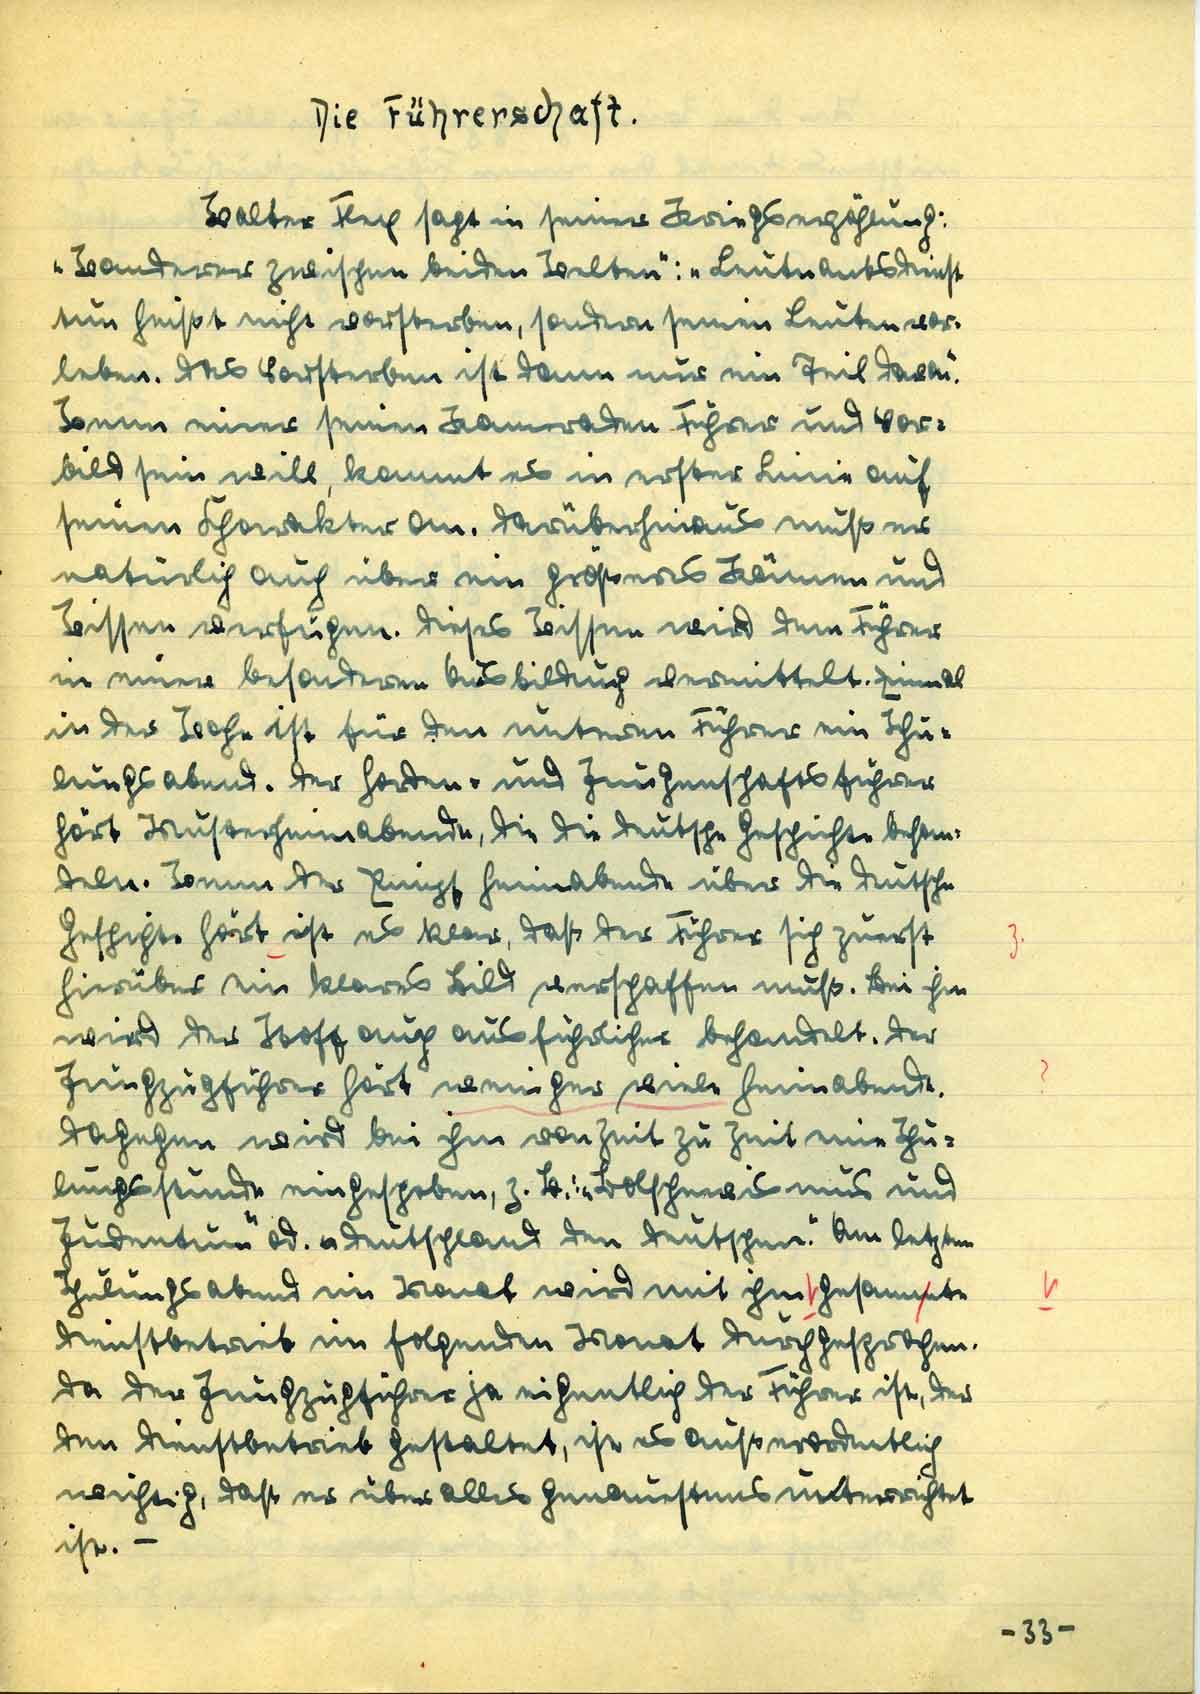 Die Führerschaft.
Walter Flex sagt in seiner Kriegserzählung:
"Wanderer zwischen beiden Welten": "Leutnantsdienst
tun heißt nicht vorsterben, sondern seinen Leuten vor-
leben. Das Vorsterben ist dann nur ein Teil davon."
Wenn einer seinen Kameraden Führer und Vor-
bild sein will, kommt es in erster Linie auf
seinen Charakter an. Darüberhinaus muß er
natürlich auch über ein größeres Können und
Wissen verfügen. Dieses Wissen wird dem Führer
in einer besonderen Ausbildung vermittelt. Einmal
in der Woche ist für den unteren Führer ein Schu-
lungsabend. Der Horden- und Jungenschaftsführer
hört Musterheimabende, die die deutsche Geschichte behan-
deln. Wenn der Pimpf Heimabende über die deutsche
Geschichte hört ist es klar, daß der Führer sich zuerst
hierüber ein klares Bild verschaffen muß. Bei ihm
wird der Stoff auch ausführlicher behandelt. Der
Jungzugführer hört weniger viele Heimabende.
Dagegen wird bei ihm von Zeit zu Zeit eine Schu-
lungsstunde eingeschoben, z. B.: "Bolschewismus und
Judentum" od. "Deutschland den Deutschen." Am letzten
Schulungsabend im Monat wird mit ihm gesammte
Dienstbetrieb im folgenden Monat durchgesprochen.
Da der Jungzugführer ja eigentlich der Führer ist, der
den Dienstbetrieb gestaltet, ist es außerordentlich
wichtig, daß er über alles genauestens unterrichtet
ist. —
Z.
?
V
-33-